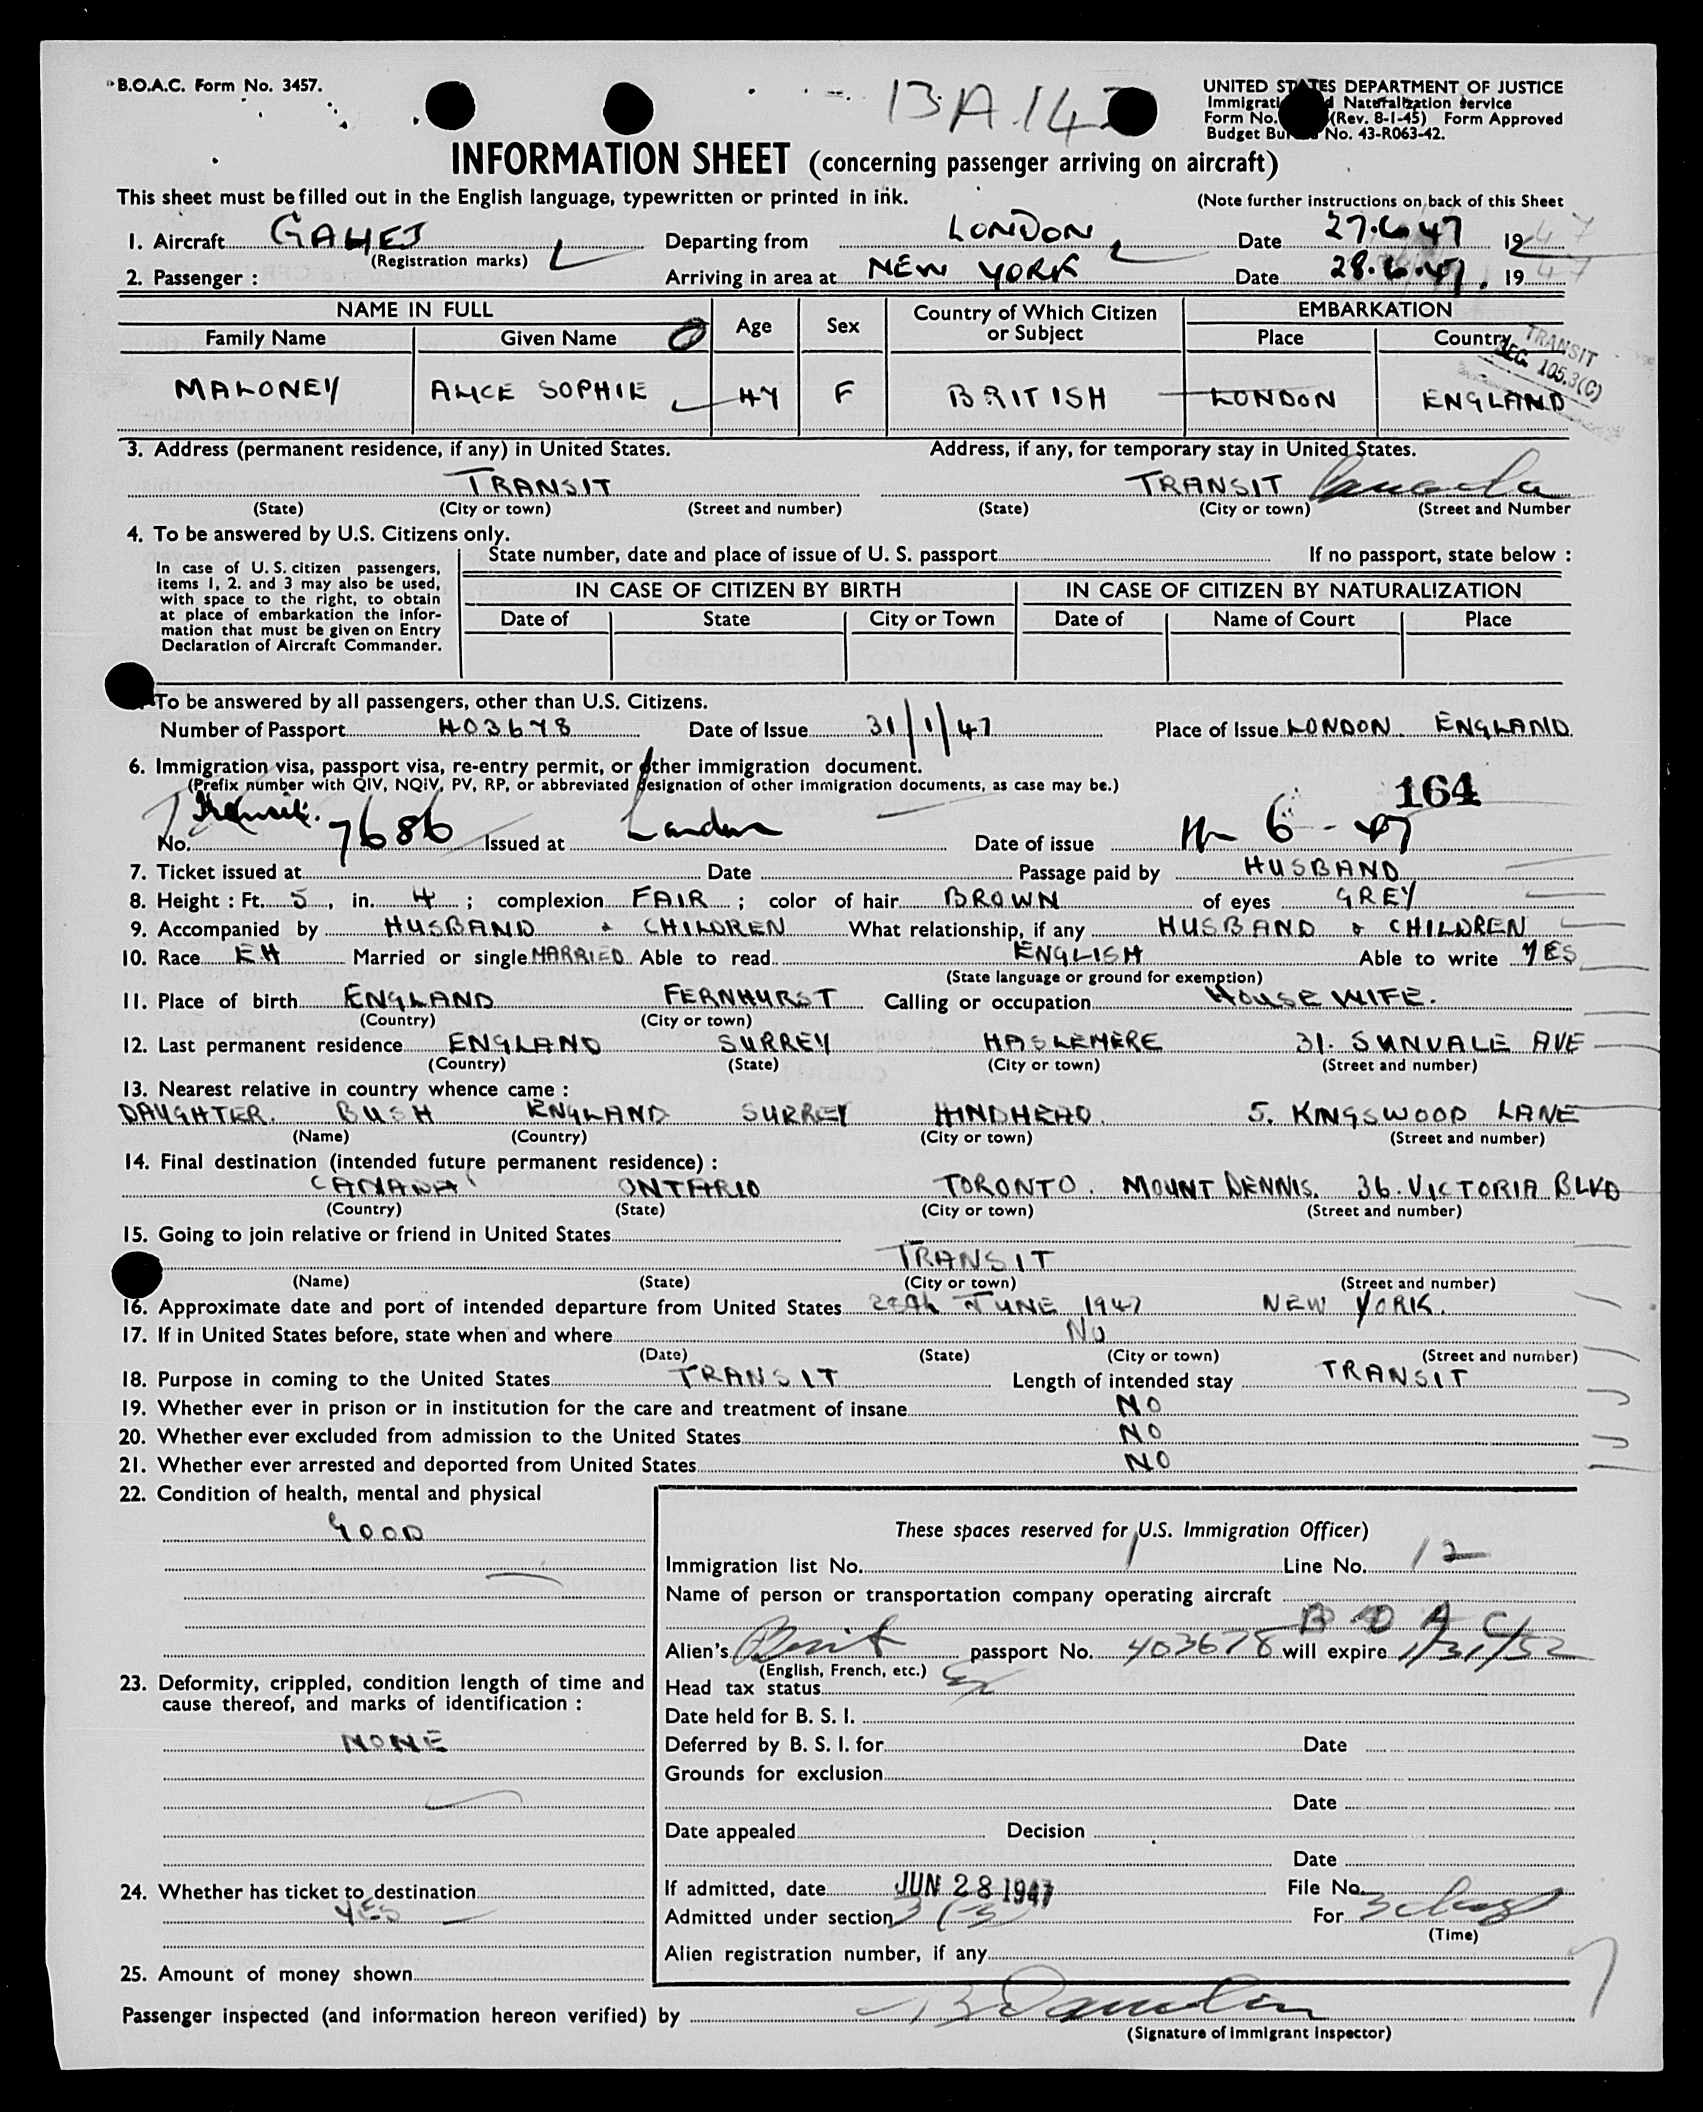 B.O.A.C. Form No. 3457.
BA.14
UNITED STATES DEPARTMENT OF JUSTICE
Immigrati d Naturalization Service
Form No. (Rev. 8-1-45) Form Approved
Budget Bu No. 43-R063-42.
INFORMATION SHEET (concerning passenger arriving on aircraft)
This sheet must be filled out in the English language, typewritten or printed in ink. (Note further instructions on back of this Sheet
1. Aircraft GAHEJ Departing from LONDON Date 27.6.47 1947
(Registration marks)
2. Passenger : Arriving in area at NEW YORK Date 28.6.47. 1947
NAME IN FULL Age Sex Country of Which Citizen or Subject EMBARKATION
Family Name Given Name Place Country
TRANSIT
REG. 105.3(C)
MALONEY ALICE SOPHIE 47 F BRITISH LONDON ENGLAND
3. Address (permanent residence, if any) in United States. Address, if any, for temporary stay in United States.
TRANSIT TRANSIT Canada
(State) (City or town) (Street and number) (State) (City or town) (Street and Number
4. To be answered by U.S. Citizens only.
State number, date and place of issue of U. S. passport If no passport, state below :
In case of U. S. citizen passengers,
items 1, 2. and 3 may also be used,
with space to the right, to obtain
at place of embarkation the infor-
mation that must be given on Entry
Declaration of Aircraft Commander.
IN CASE OF CITIZEN BY BIRTH IN CASE OF CITIZEN BY NATURALIZATION
Date of State City or Town Date of Name of Court Place
To be answered by all passengers, other than U.S. Citizens.
Number of Passport 403678 Date of Issue 31/1/47 Place of Issue LONDON. ENGLAND.
6. Immigration visa, passport visa, re-entry permit, or other immigration document.
(Prefix number with QIV, NQIV, PV, RP, or abbreviated designation of other immigration documents, as case may be.)
164
Transit.
No. 7686 Issued at London Date of issue 6 - 47
7. Ticket issued at Date Passage paid by HUSBAND
8. Height : Ft. 5, in. 4 ; complexion FAIR ; color of hair BROWN of eyes GREY
9. Accompanied by HUSBAND & CHILDREN What relationship, if any HUSBAND & CHILDREN
10. Race EH Married or single MARRIED Able to read ENGLISH Able to write YES
(State language or ground for exemption)
11. Place of birth ENGLAND FERNHURST Calling or occupation HOUSEWIFE.
(Country) (City or town)
12. Last permanent residence ENGLAND SURREY HASLEMERE 31. SUNVALE AVE
(Country) (State) (City or town) (Street and number)
13. Nearest relative in country whence came :
DAUGHTER. BUSH ENGLAND SURREY HINDHEAD. 5. KINGSWOOD LANE
(Name) (Country) (City or town) (Street and number)
14. Final destination (intended future permanent residence) :
CANADA ONTARIO TORONTO. MOUNT DENNIS. 36. VICTORIA BLVD
(Country) (State) (City or town) (Street and number)
15. Going to join relative or friend in United States
TRANSIT
(Name) (State) (City or town) (Street and number)
16. Approximate date and port of intended departure from United States 28th JUNE 1947 NEW YORK.
17. If in United States before, state when and where NO
(Date) (State) (City or town) (Street and number)
18. Purpose in coming to the United States TRANSIT Length of intended stay TRANSIT
19. Whether ever in prison or in institution for the care and treatment of insane NO
20. Whether ever excluded from admission to the United States NO
21. Whether ever arrested and deported from United States NO
22. Condition of health, mental and physical
GOOD
These spaces reserved for U.S. Immigration Officer)
Immigration list No. 1 Line No. 12
Name of person or transportation company operating aircraft
B O A C
Alien's Brit passport No. 403678 will expire 1/31/52
(English, French, etc.)
23. Deformity, crippled, condition length of time and
cause thereof, and marks of identification :
NONE
Head tax status
Date held for B. S. I.
Deferred by B. S. I. for Date
Grounds for exclusion
Date
Date appealed Decision
Date
24. Whether has ticket to destination
YES
If admitted, date JUN 28 1947 File No.
Admitted under section 3(3) For 3 days
(Time)
Alien registration number, if any
25. Amount of money shown
Passenger inspected (and information hereon verified) by
(Signature of Immigrant Inspector)